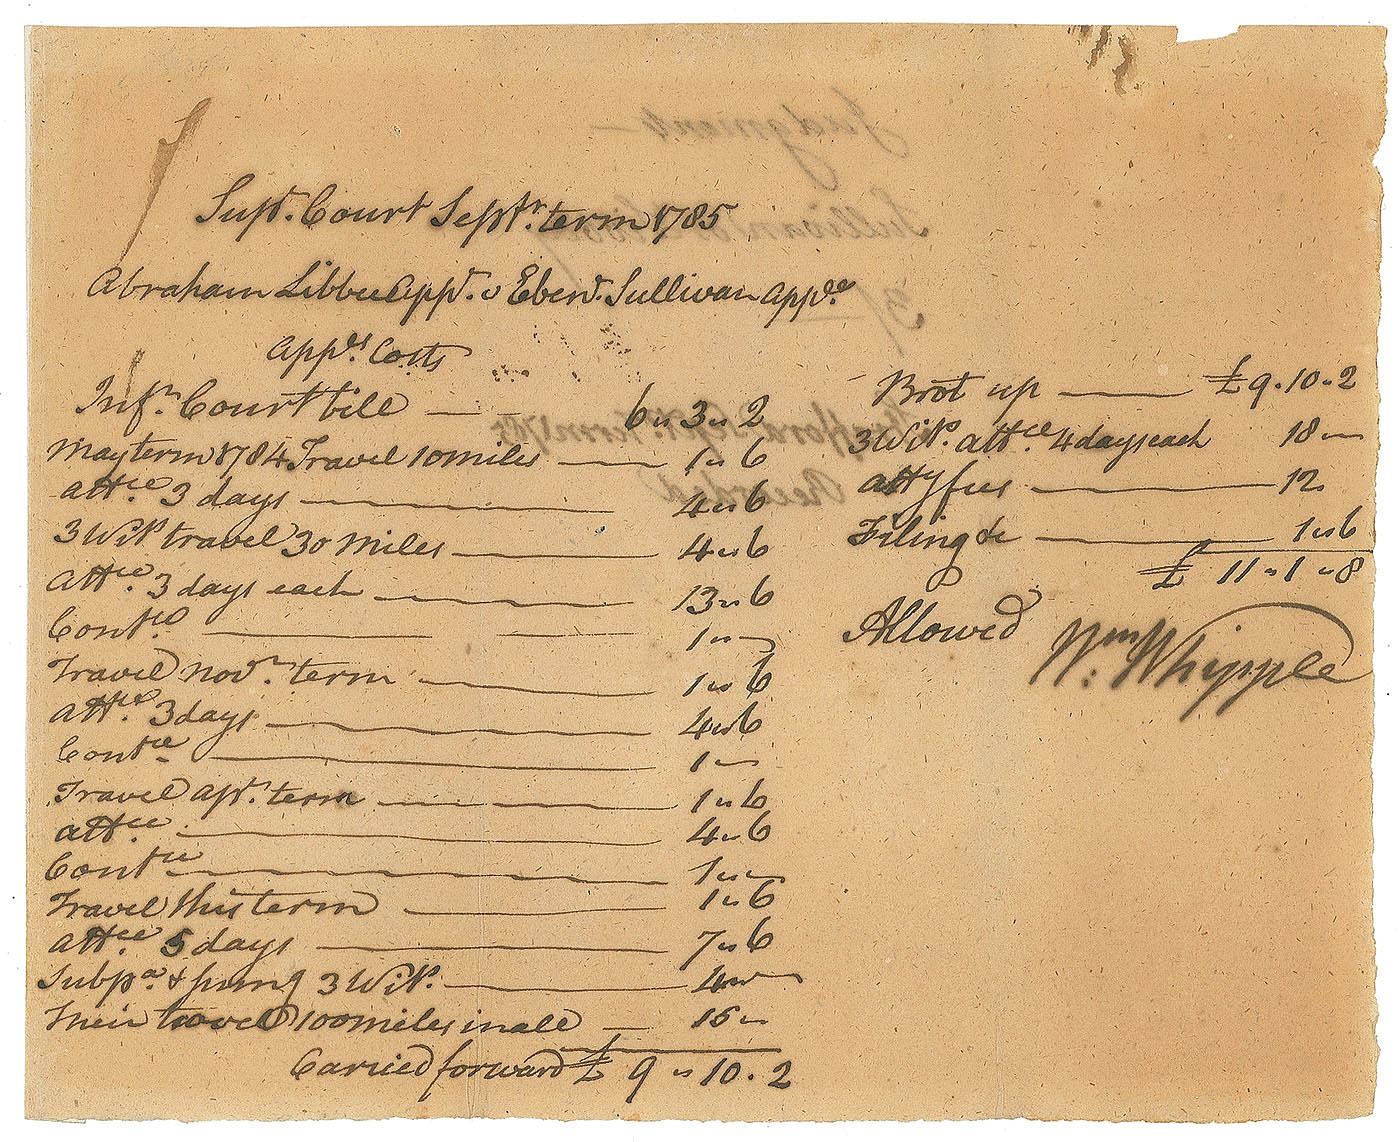 Supr. Court Septr. term 1785
Abraham Libbee Appt. v Ebenr. Sullivan Appee
Appes. Costs
Infr. Court bill — 6 " 3 " 2
May term 1784 Travel 10 miles — 1 " 6
Attce. 3 days — 4 " 6
3 Wits travel 30 miles — 4 " 6
Attce. 3 days each — 13 " 6
Contce. — 1 "
Travel Novr. term — 1 " 6
Attce. 3 days — 4 " 6
Contce — 1 "
Travel Apr. term — 1 " 6
Attce. — 4 " 6
Contce — 1 "
Travel this term — 1 " 6
Attce. 5 days — 7 " 6
Subpa. & sumg 3 Wits. — 4 "
Their travel 100 miles in all — 15 "
Carried forward £ 9 " 10 . 2
Brot up — £ 9 . 10 . 2
3 Wits. attce 4 days each 18 "
Atty fees — 12
Filing &c — 1 " 6
£ 11 " 1 " 8
Allowed Wm: Whipple
Judgment —
Sullivan
3/
Septr. term 1785
Recorded